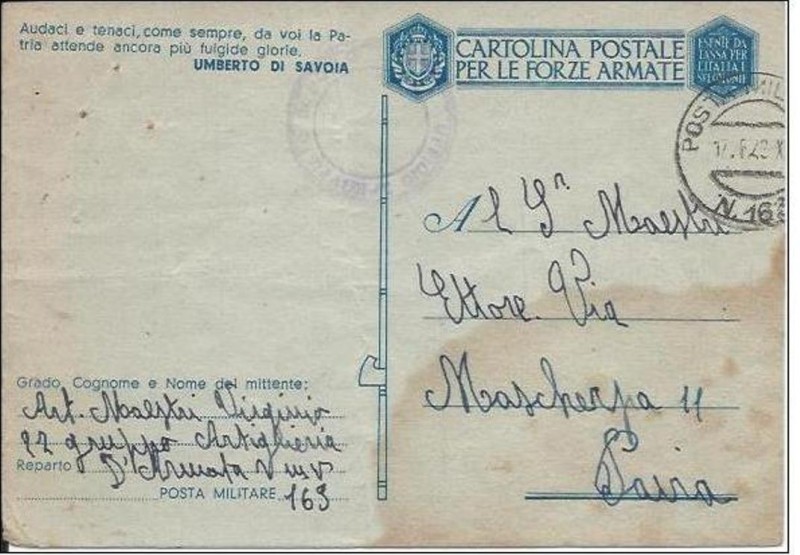 Audaci e tenaci, come sempre, da voi la Pa-
tria attende ancora più fulgide glorie.
UMBERTO DI SAVOIA
CARTOLINA POSTALE
PER LE FORZE ARMATE
ESENTE DA
TASSA PER
L'ITALIA E
POSTA MIL
N. 163
Al Sr Maestri
Ettore Via
Mascherpa 11
Pavia
Grado, Cognome e Nome del mittente:
Art. Maestri Virginio
gruppo Artiglieria
Reparto D'Armata
POSTA MILITARE 163